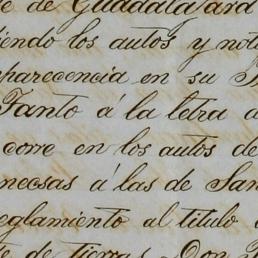 de Guadalajara
iendo los autos y noti
parecencia en su
Tanto á la letra
corre en los autos de
necsas á las de San
eglamiento al titulo
de tierras Don